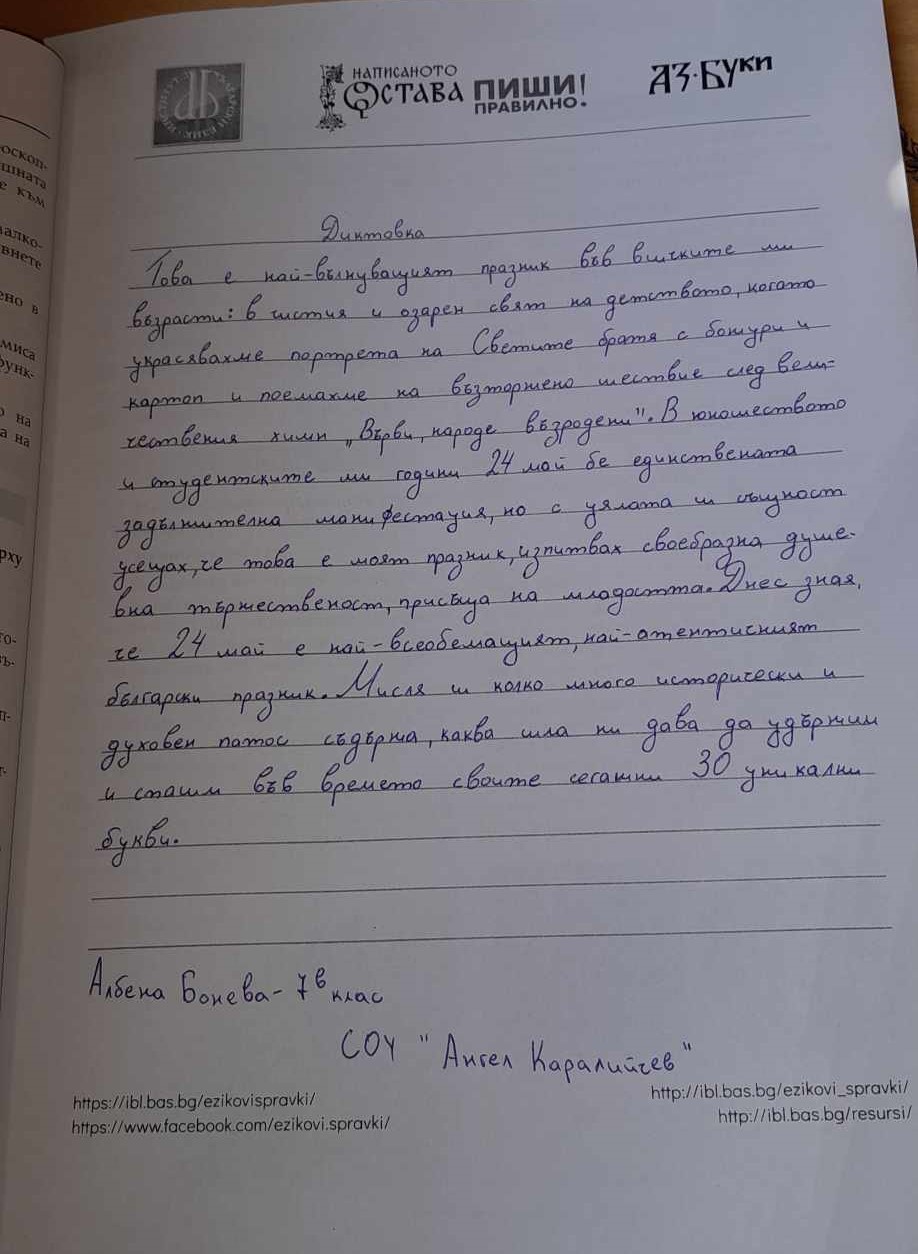 НАПИСАНОТО
ОСТАВА
ПИШИ!
ПРАВИЛНО.
АЗ·БУКИ
оскоп-
шната
е към
алко-
внете
ено в
миса
функ-
о на
а на
рху
го-
ъ-
п-
т-
Диктовка
Това е най-вълнуващият празник във всичките ми
възрасти: в чистия и озарен свят на детството, когато
украсявахме портрета на Светите братя с божури и
картоп и поемахме на възторжено шествие след вели-
чествения химн „Върви, народе възродени". В юношеството
и студентските ми години 24 май бе единствената
задължителна манифестация, но с цялата си същност
усещах, че това е моят празник, изпитвах своеобразна душе-
вна тържественост, присъща на младостта. Днес зная,
че 24 май е най-всеобемащият, най-атентисният
български празник. Мисля си колко много исторически и
духовен патос съдържа, каква сила ни дава да удържим
и спасим във времето своите сегашни 30 уникални
букви.
Албена Бонева- 7в клас
СОУ "Ангел Каралийчев"
https://ibl.bas.bg/ezikovispravki/
http://ibl.bas.bg/ezikovi_spravki/
https://www.facebook.com/ezikovi.spravki/
http://ibl.bas.bg/resursi/